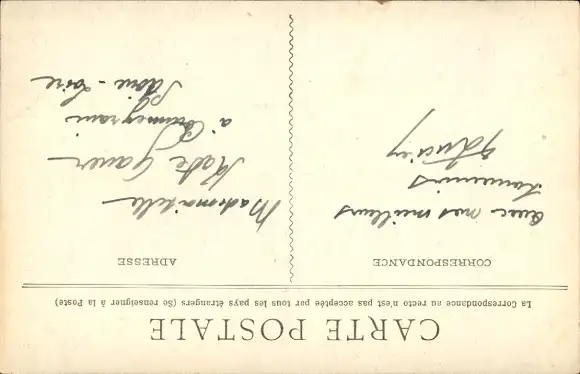 CARTE POSTALE
La Correspondance au recto n'est pas acceptée par tous les pays étrangers (Se renseigner à la Poste)
CORRESPONDANCE
avec mes meilleurs
souvenirs
ADRESSE
Mademoiselle
à
Loire